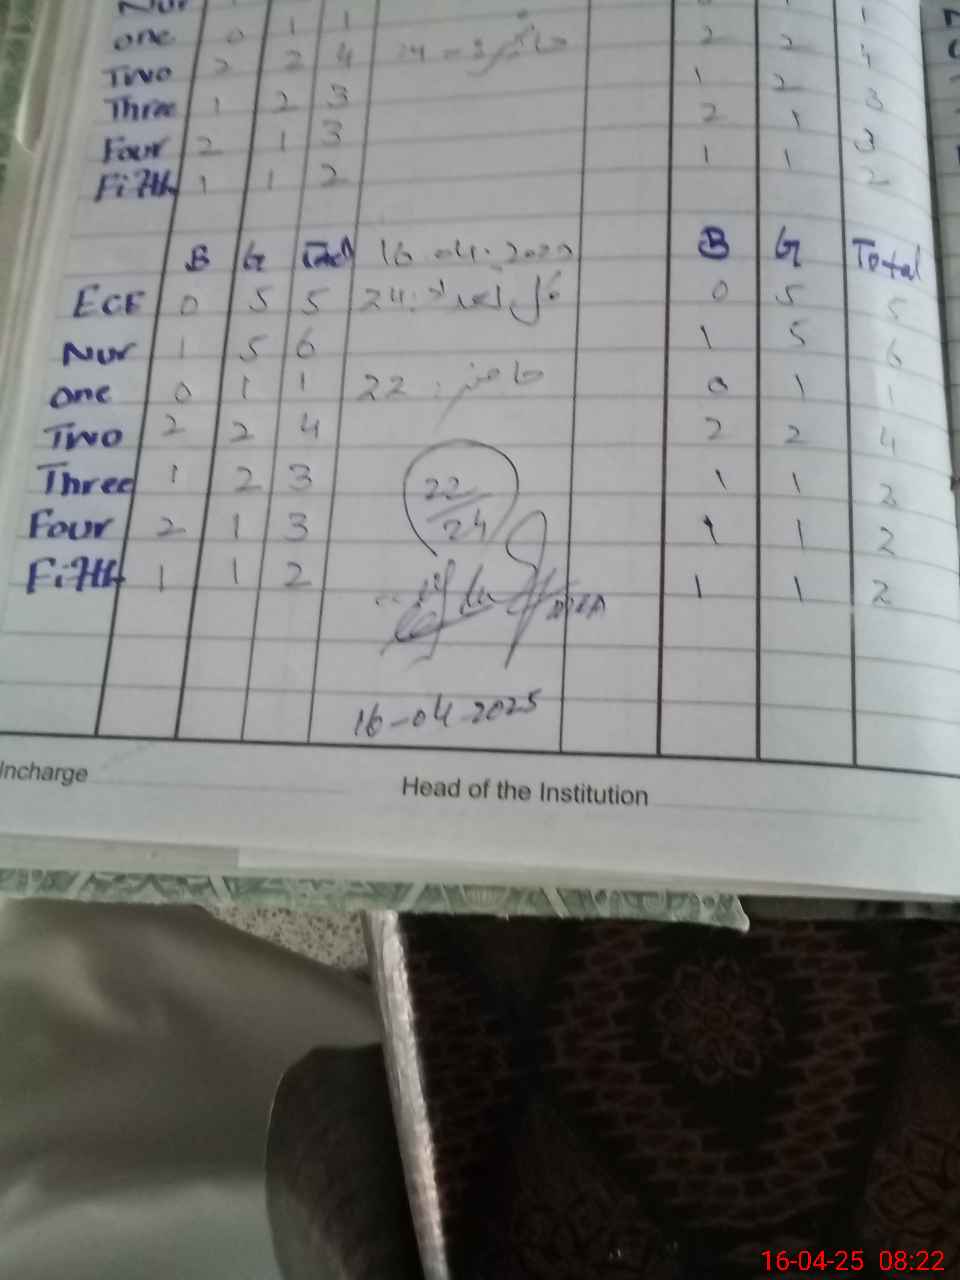 Nur 1 1 1
one 0 1 1 2 2 4
Two 2 2 4 حاضر 1 2 3
Three 1 2 3 2 1 3
Four 2 1 3 1 1 2
Fifth 1 1 2
B G Total 16.04.2025 B G Total
ECE 0 5 5 کل تعداد: 24 0 5 5
Nur 1 5 6 1 5 6
one 0 1 1 حاضر: 22 0 1 1
Two 2 2 4 2 2 4
Three 1 2 3 1 1 2
Four 2 1 3 22/24 1 1 2
Fifth 1 1 2 1 1 2
16-04-2025
Incharge
Head of the Institution
16-04-25 08:22